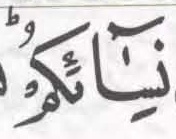 نِسَآئِكُمْ ؕ